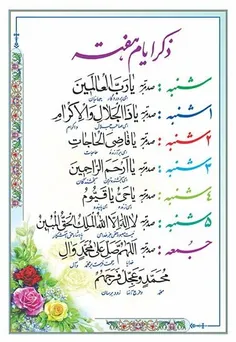 ذکر ایام هفته
شنبه : صد مرتبه یا رَبَّ الْعالَمین
۱شنبه : صد مرتبه یا ذَالْجَلالِ وَالْاِکْرامِ
۲شنبه : صد مرتبه یا قاضِیَ الْحاجات
۳شنبه : صد مرتبه یا اَرْحَمَ الرّاحِمین
۴شنبه : صد مرتبه یا حَیُّ یا قَیّومُ
۵شنبه : صد مرتبه لا اِلهَ اِلَّا اللهُ الْمَلِکُ الْحَقُّ الْمُبین
جمعه : صد مرتبه اَللّهُمَّ صَلِّ عَلی مُحَمَّدٍ وَ آلِ
مُحَمَّدٍ وَ عَجِّلْ فَرَجَهُمْ